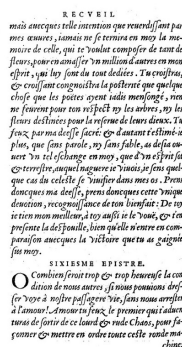 RECVEIL
mais auecques telle intention que reuerdissant par
mes œuures, iamais ne se ternira en moy la me-
moire de celle, qui te voulut composer de tant de
fleurs, pour en amasser vn million d'autres en mon
esprit, qui luy sont du tout dediées. Tu croistras,
& croissant congnoistra la posterité que quelque
chose que les poëtes ayent iadis mensongé, rien
ne feurent pour ton respect ny les arbres, ny les
fleurs destinées pour la reserue de leurs dieux. Tu
feuz par ma deesse sacré: & d'autant t'estimé-ie
plus, que sans parole, ny sans fable, as desia ou-
uert vn tel eschange en moy, que d'vn esprit fa
& terrestre, auquel naguere ie viuois, ie sens quel-
que cas du celeste se viuifier dans mes os. Pren
doncques ma deesse, prens doncques ceste vnique
deuotion, recognoissance de ton bienfait: De toy
ie tien mon meilleur, à toy aussi ie le vouë, & t'en
presente la despouille, bien qu'elle n'entre en com-
paraison auecques la victoire que tu as gaignée
sus moy.
SIXIESME EPISTRE.
O Combien seroit trop & trop heureuse la con
dition de nous autres, si nous pouuions dres-
ser voye à nostre passagere vie, sans nous arrester
à l'amour! Amour tu feuz le premier qui t'aduen-
turas de sortir de ce lourd & rude Chaos, pour fa-
çonner & mettre en ordre toute ceste ronde ma-
chine